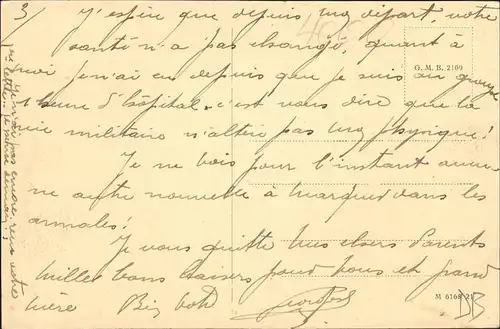 3/ J'espère que depuis mon départ, votre
santé n'a pas changé, quant à
moi je n'ai eu depuis que je suis au groupe
1 heure d'hôpital. c'est vous dire que la
vie militaire n'altère pas mon physique!
Je ne vois pour l'instant aucu-
ne autre nouvelle à marquer dans les
annales!
Je vous quitte mes chers Parents
mille bons baisers pour vous et grand
mère Big
G. M. B. 2109
M 6168 21
DB
Je n'ai pas encore reçu votre
1ère lettre